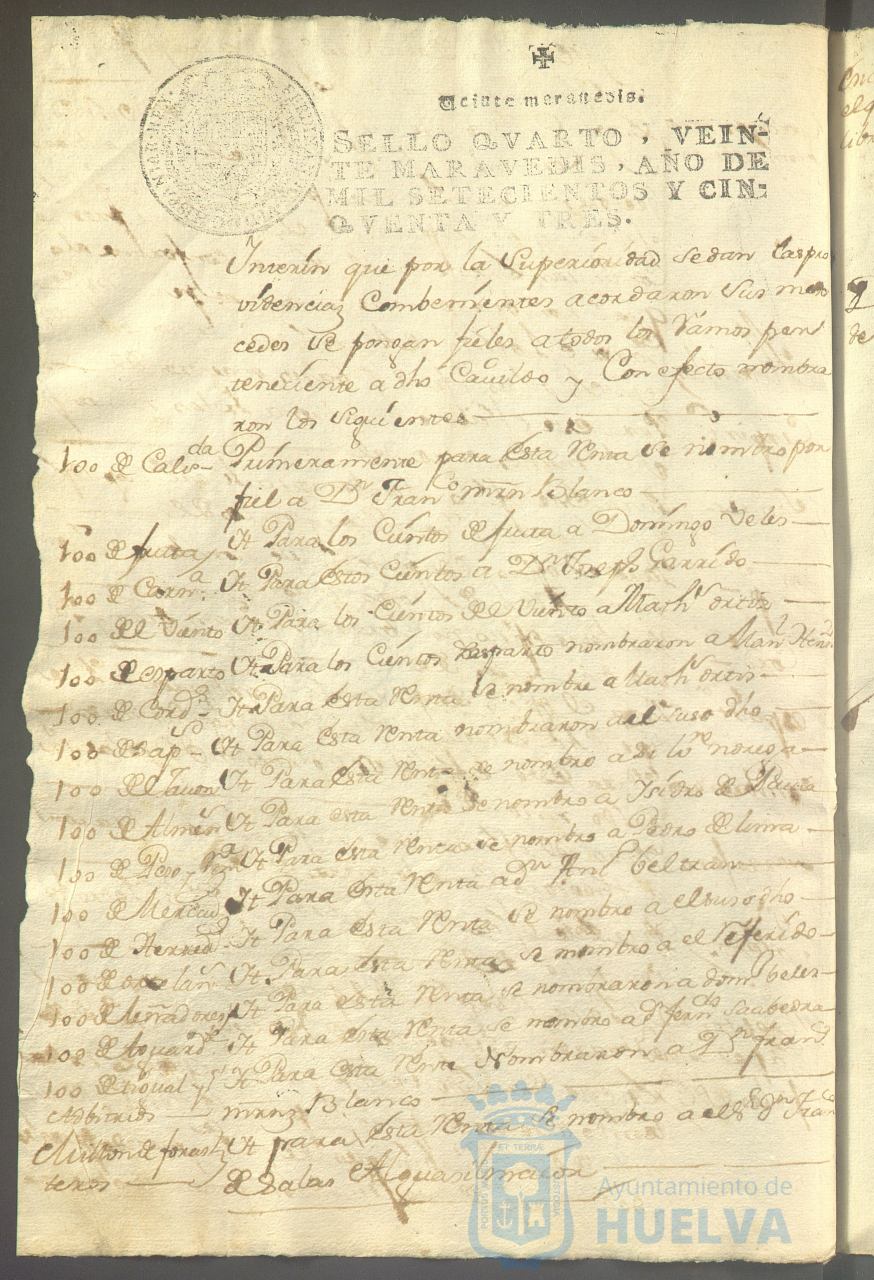 Veinte maravedis.
SELLO QVARTO, VEIN-
TE MARAVEDIS, AÑO DE
MIL SETECIENTOS Y CIN-
QVENTA Y TRES.
Ynterin que por la Superioridad se dan las pro
videncias Combenientes acordaron sus mer
cedes se pongan fieles a todos los Ramos per
teneciente a dho Cavildo y Con efecto nombra
ron los siguientes
100 de Cali.da Primeramente para esta Renta se nombro por
fiel a Dn Franco Mrn Blanco
100 de fruta Yt Para los Cientos de fruta a Domingo Veles
100 de Carn.a Yt Para estos Cientos a Dn Joseph Garrido
100 del Viento Yt Para los Cientos del Viento a Maths Ortis
100 de esparto Yt Para los Cientos desparto nombraron a Manl
100 de Cord.a Yt Para esta Renta se nombro a Maths Ortis
100 de Sap.a Yt Para esta Renta nombraron al suso dho
100 del Yt Para esta Renta se nombro a noriega
100 de Almn Yt Para esta Renta se nombro a Ysidro de
100 de Yt Para esta Renta se nombro a Pedro de lima
100 de Mercad Yt Para esta Renta a dn Anl beltran
100 de Herred Yt Para esta Renta se nombro a el suso dho
100 de ortelan Yt Para esta Renta se nombro a el Referido
100 de leñadores Yt Para esta Renta se nombraron a domo beles
100 de Aguard.te Yt Para esta Renta se nombro a dn ferndo Saabedra
100 de Yt Para esta Renta Nombraron a Dn Fran.co
Adbitrios mrnz Blanco
de foras Yt para esta Renta se nombro a el Sr Dn Fran
teros de Salas Alguasil maior
ET TERRAE
Ayuntamiento de
HUELVA